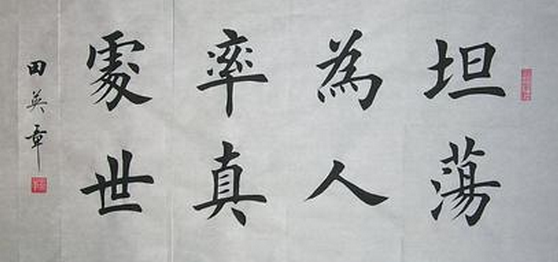 坦蕩
為人
率真
處世
田英章